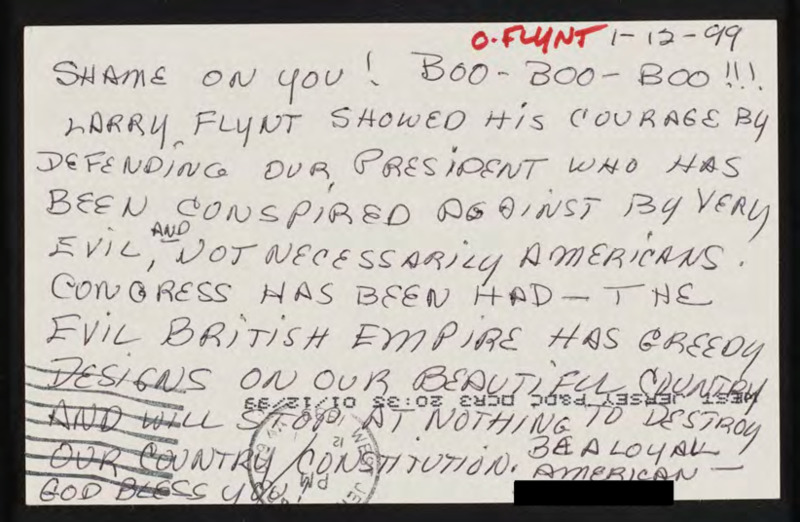 O-FLYNT 1-12-99
SHAME ON YOU! BOO-BOO-BOO!!!.
LARRY FLYNT SHOWED HIS COURAGE BY
DEFENDING OUR PRESIDENT WHO HAS
BEEN CONSPIRED AGAINST BY VERY
EVIL, AND NOT NECESSARILY AMERICANS.
CONGRESS HAS BEEN HAD — THE
EVIL BRITISH EMPIRE HAS GREEDY
DESIGNS ON OUR BEAUTIFUL COUNTRY
WEST JERSEY P&DC DCR3 20:35 01/12/99
AND WILL STOP AT NOTHING TO DESTROY
OUR COUNTRY/CONSTITUTION. BE A LOYAL
AMERICAN —
GOD BLESS YOU!
PM
12